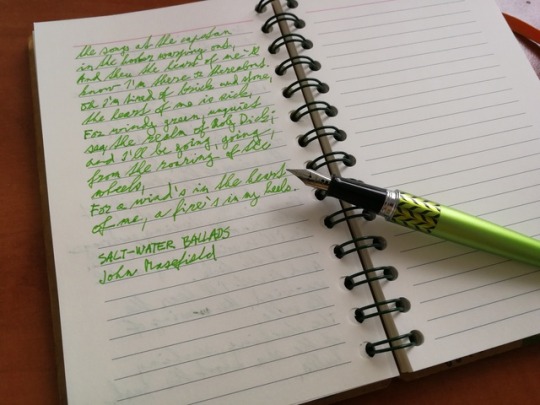 the songs at the capstan
in the hooker warping out,
And then the heart of me'll
know I'm there or thereabout.
Oh I'm tired of brick and stone,
the heart of me is sick,
For windy green, unquiet
sea, the realm of Moby Dick;
and I'll be going, going,
from the roaring of the
wheels,
For a wind's in the heart
of me, a fire's in my heels.
SALT-WATER BALLADS
John Masefield